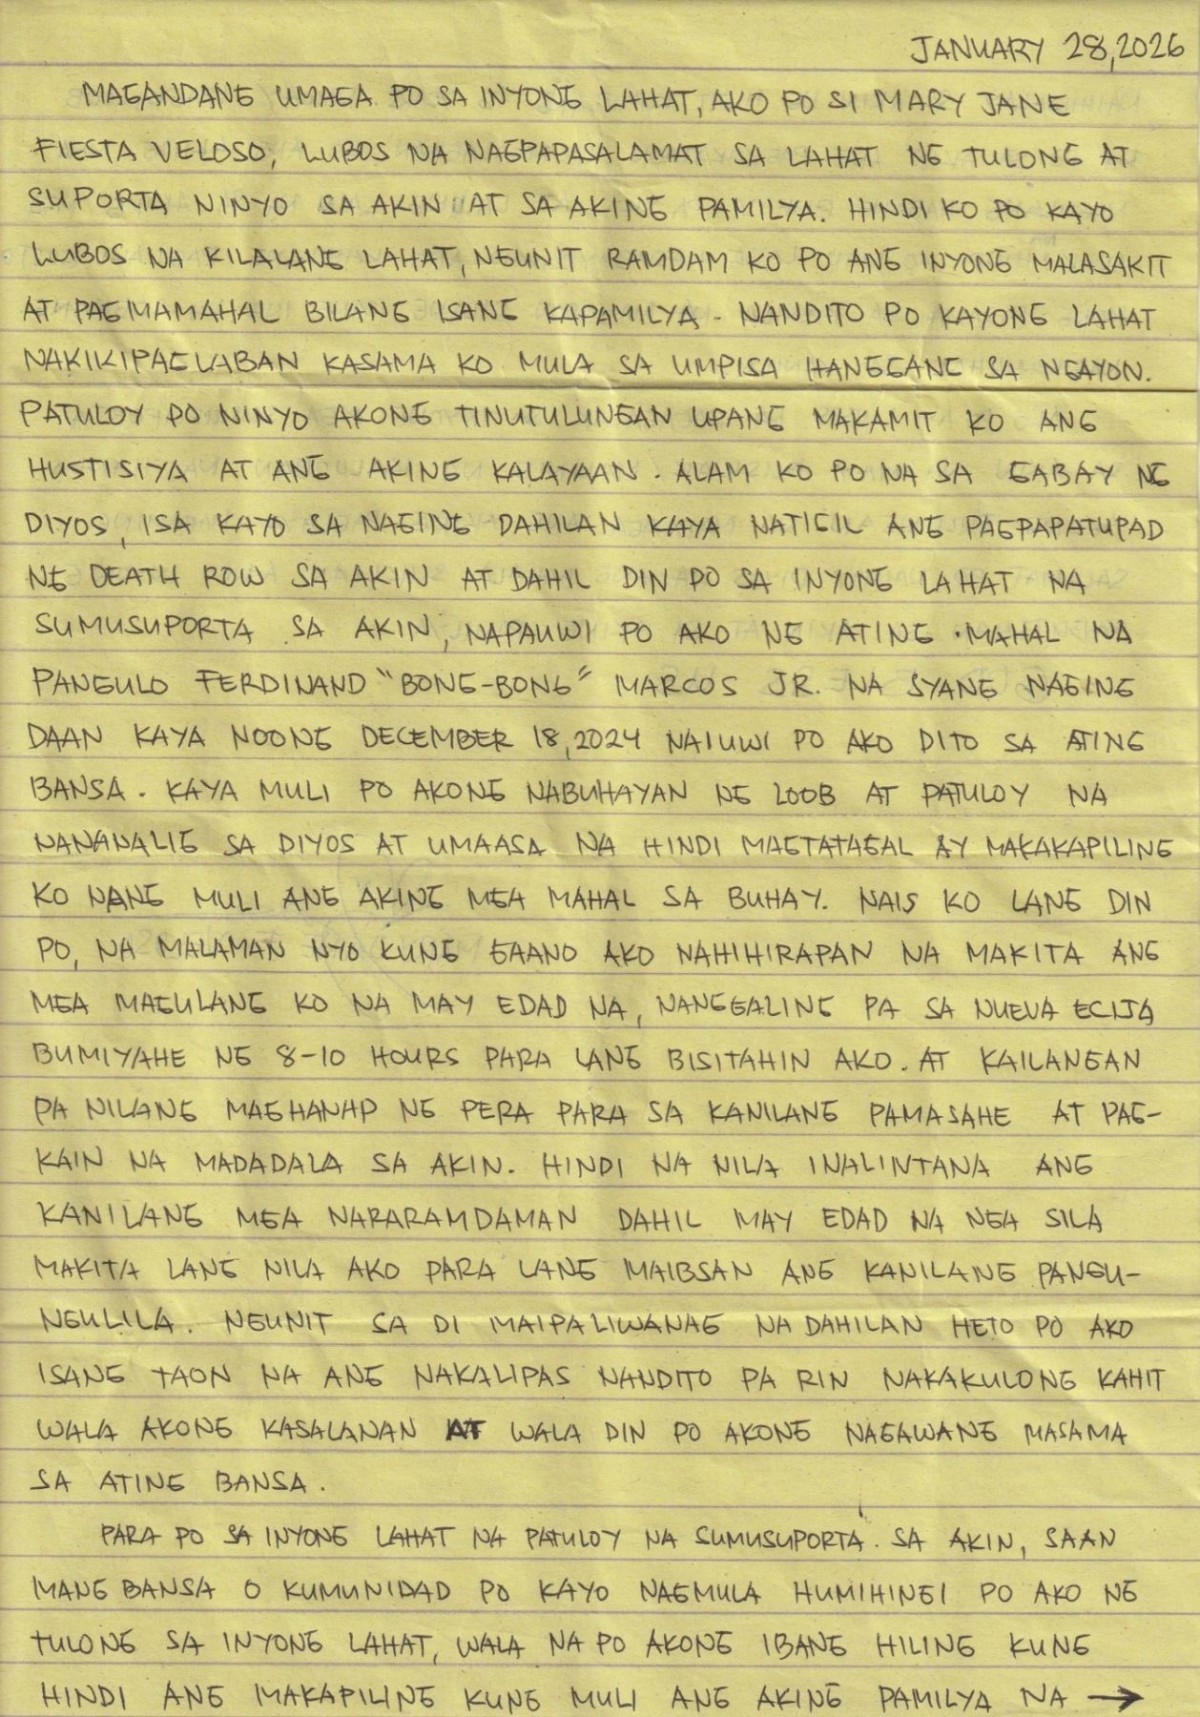 JANUARY 28,2026
MAGANDANG UMAGA PO SA INYONG LAHAT, AKO PO SI MARY JANE
FIESTA VELOSO, LUBOS NA NAGPAPASALAMAT SA LAHAT NG TULONG AT
SUPORTA NINYO SA AKIN AT SA AKING PAMILYA. HINDI KO PO KAYO
LUBOS NA KILALANG LAHAT, NGUNIT RAMDAM KO PO ANG INYONG MALASAKIT
AT PAGMAMAHAL BILANG ISANG KAPAMILYA. NANDITO PO KAYONG LAHAT
NAKIKIPAGLABAN KASAMA KO MULA SA UMPISA HANGGANG SA NGAYON.
PATULOY PO NINYO AKONG TINUTULUNGAN UPANG MAKAMIT KO ANG
HUSTISIYA AT ANG AKING KALAYAAN. ALAM KO PO NA SA GABAY NG
DIYOS, ISA KAYO SA NAGING DAHILAN KAYA NATIGIL ANG PAGPAPATUPAD
NG DEATH ROW SA AKIN AT DAHIL DIN PO SA INYONG LAHAT NA
SUMUSUPORTA SA AKIN, NAPAUWI PO AKO NG ATING MAHAL NA
PANGULO FERDINAND "BONG-BONG" MARCOS JR. NA SYANG NAGING
DAAN KAYA NOONG DECEMBER 18,2024 NAIUWI PO AKO DITO SA ATING
BANSA. KAYA MULI PO AKONG NABUHAYAN NG LOOB AT PATULOY NA
NANANALIG SA DIYOS AT UMAASA NA HINDI MAGTATAGAL AY MAKAKAPILING
KO NANG MULI ANG AKING MGA MAHAL SA BUHAY. NAIS KO LANG DIN
PO, NA MALAMAN NYO KUNG GAANO AKO NAHIHIRAPAN NA MAKITA ANG
MGA MAGULANG KO NA MAY EDAD NA, NANGGALING PA SA NUEVA ECIJA
BUMIYAHE NG 8-10 HOURS PARA LANG BISITAHIN AKO. AT KAILANGAN
PA NILANG MAGHANAP NG PERA PARA SA KANILANG PAMASAHE AT PAG-
KAIN NA MADADALA SA AKIN. HINDI NA NILA INALINTANA ANG
KANILANG MGA NARARAMDAMAN DAHIL MAY EDAD NA NGA SILA
MAKITA LANG NILA AKO PARA LANG MAIBSAN ANG KANILANG PANGU-
NGULILA. NGUNIT SA DI MAIPALIWANAG NA DAHILAN HETO PO AKO
ISANG TAON NA ANG NAKALIPAS NANDITO PA RIN NAKAKULONG KAHIT
WALA AKONG KASALANAN AT WALA DIN PO AKONG NAGAWANG MASAMA
SA ATING BANSA.
PARA PO SA INYONG LAHAT NA PATULOY NA SUMUSUPORTA SA AKIN, SAAN
MANG BANSA O KUMUNIDAD PO KAYO NAGMULA HUMIHINGI PO AKO NG
TULONG SA INYONG LAHAT, WALA NA PO AKONG IBANG HILING KUNG
HINDI ANG MAKAPILING KUNG MULI ANG AKING PAMILYA NA →